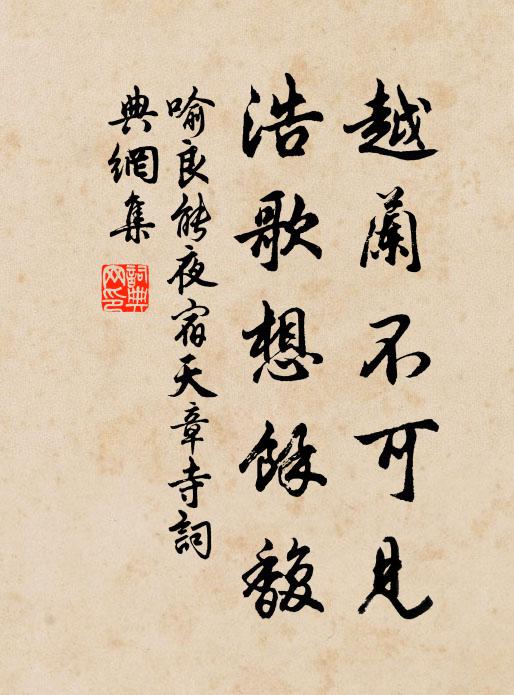 越蘭不可見
浩歌想餘馥
喻良能夜宿天章寺詞
典網集
詞典
网印